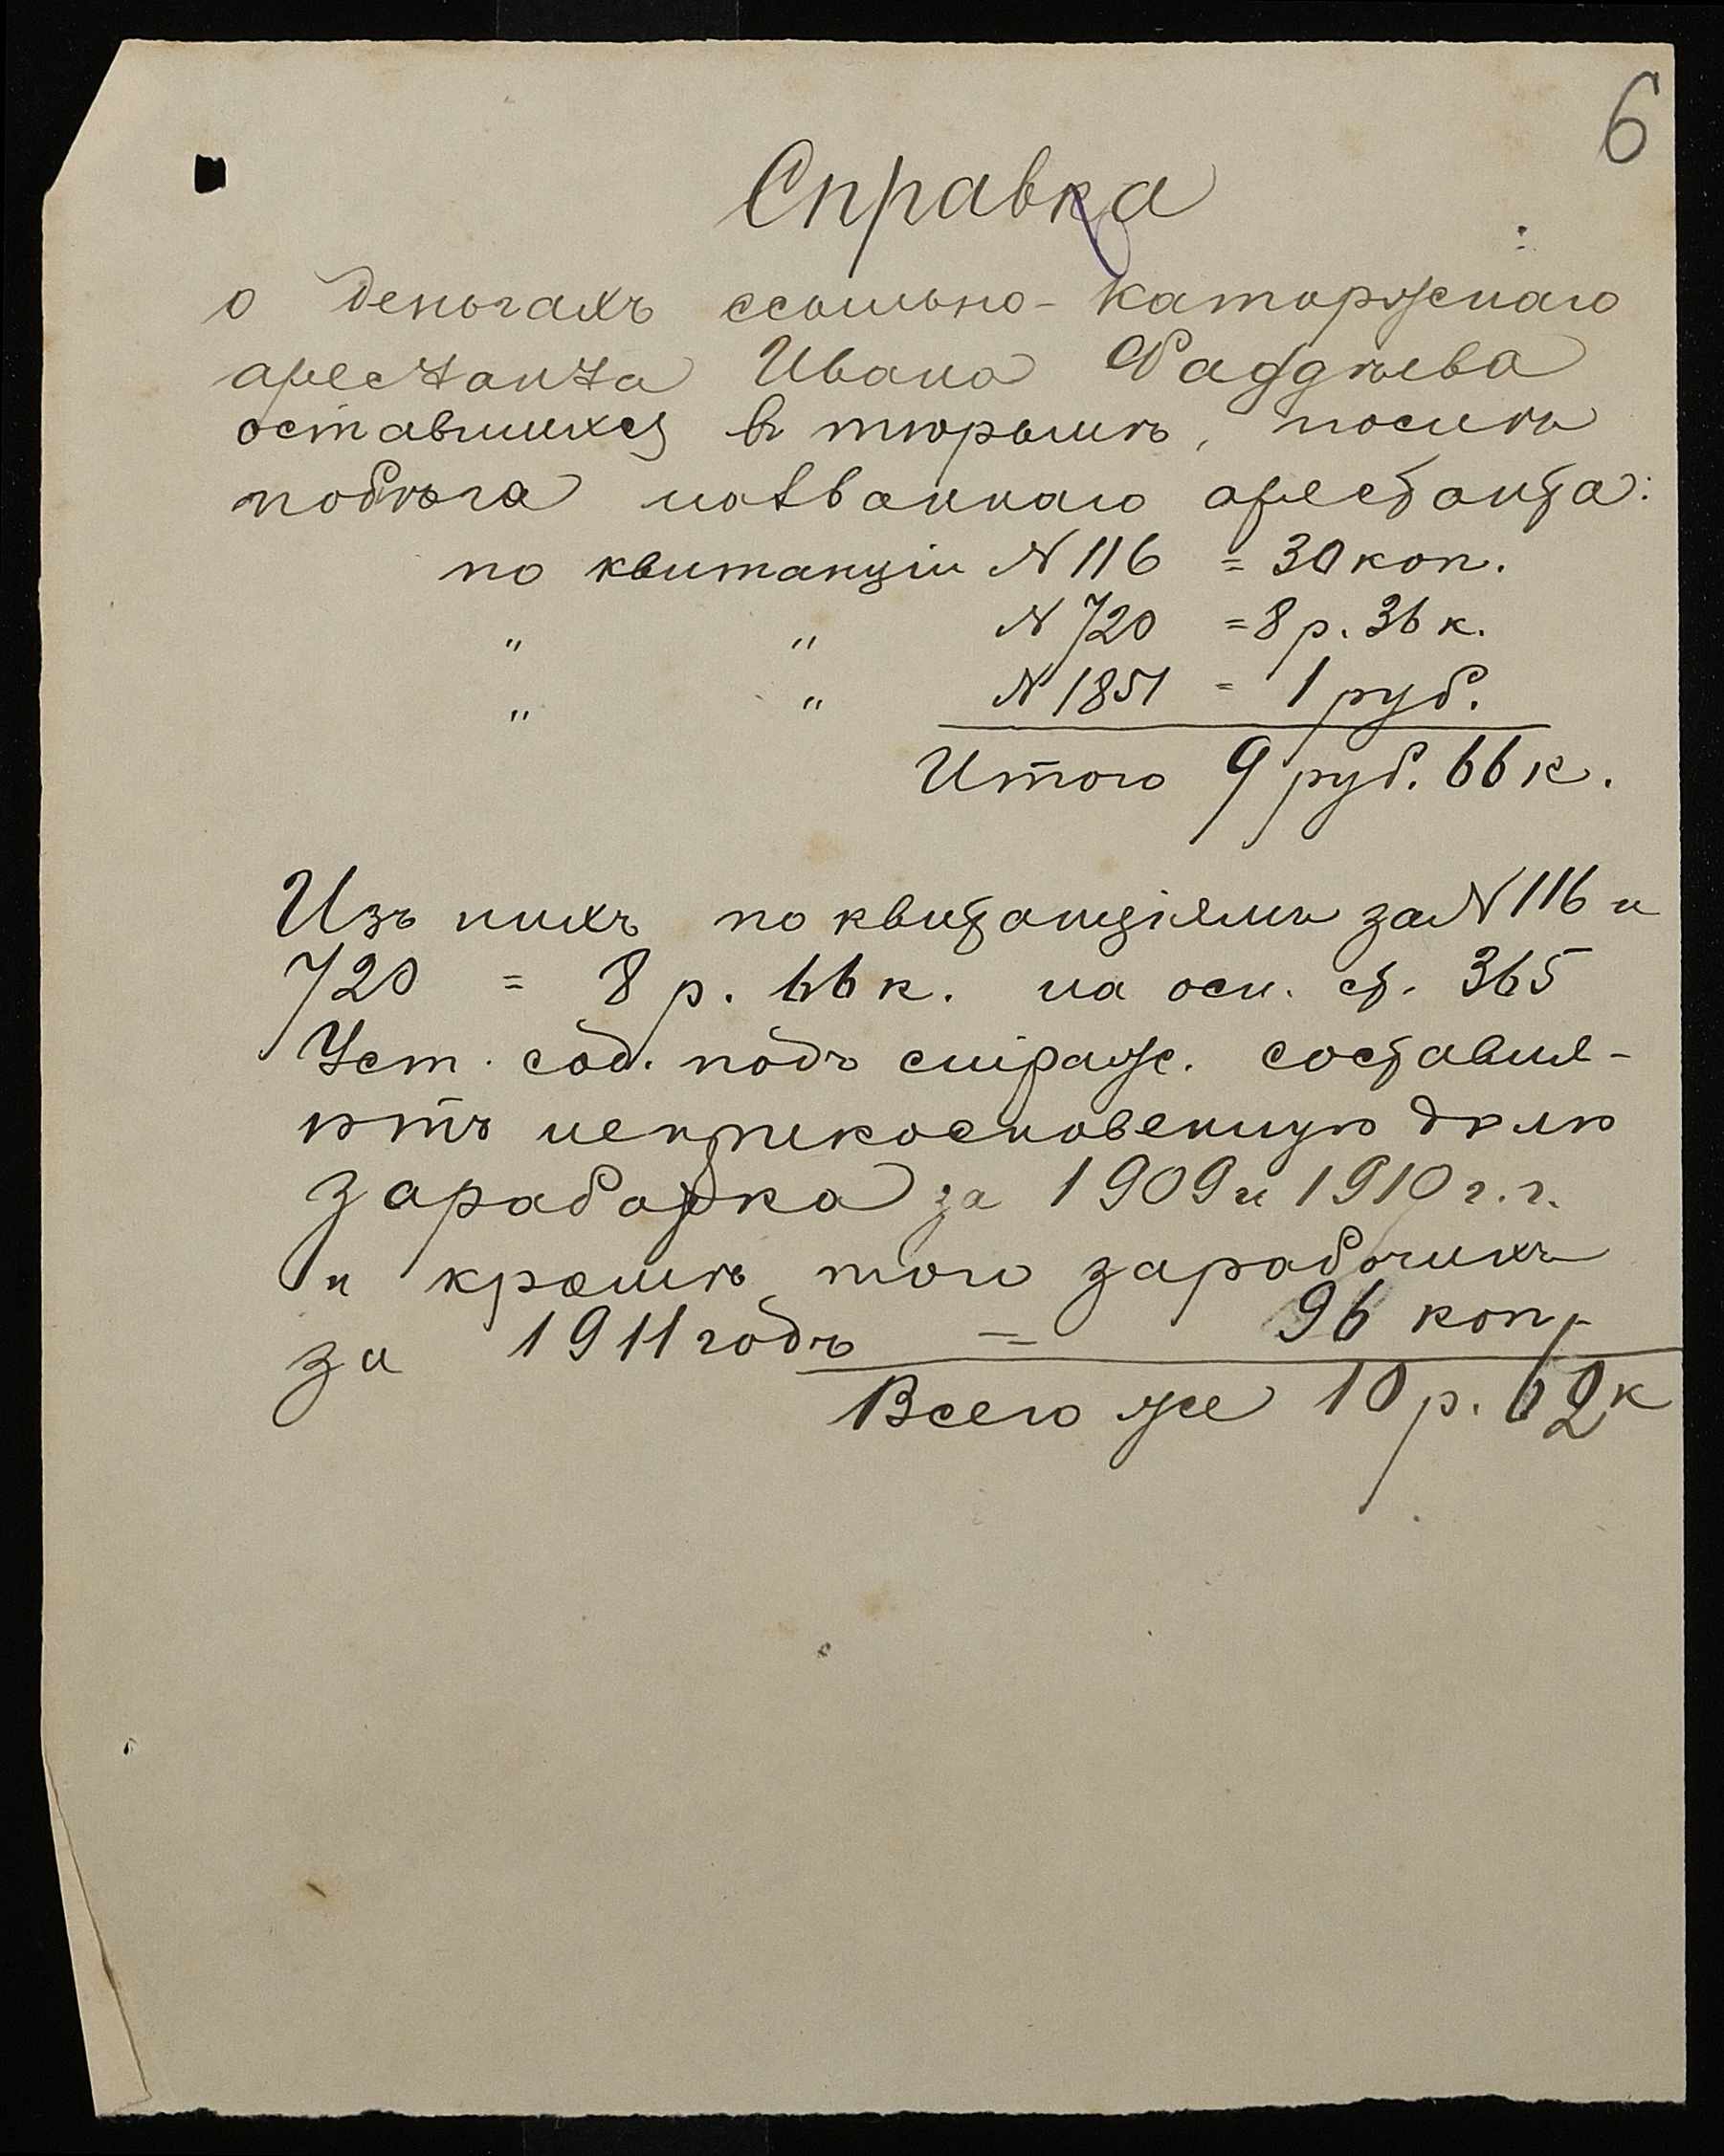 6
Справка
о деньгахъ ссыльно-каторжнаго
арестанта Ивана Фаддѣева
оставшихся въ тюрьмѣ, послѣ
побѣга названнаго арестанта:
по квитанціи N 116 = 30 коп.
" " N 720 = 8 р. 36 к.
" " N 1851 = 1 руб.
Итого 9 руб. 66 к.
Изъ нихъ по квитанціямъ за N 116 и
720 = 8 р. 66 к. на осн. ст. 365
Уст. сод. подъ страж. составля-
ютъ неприкосновенную долю
заработка за 1909 и 1910 г.г.
и кромѣ того заработчихъ
за 1911 годъ = 96 коп.
Всего же 10 р. 62 к